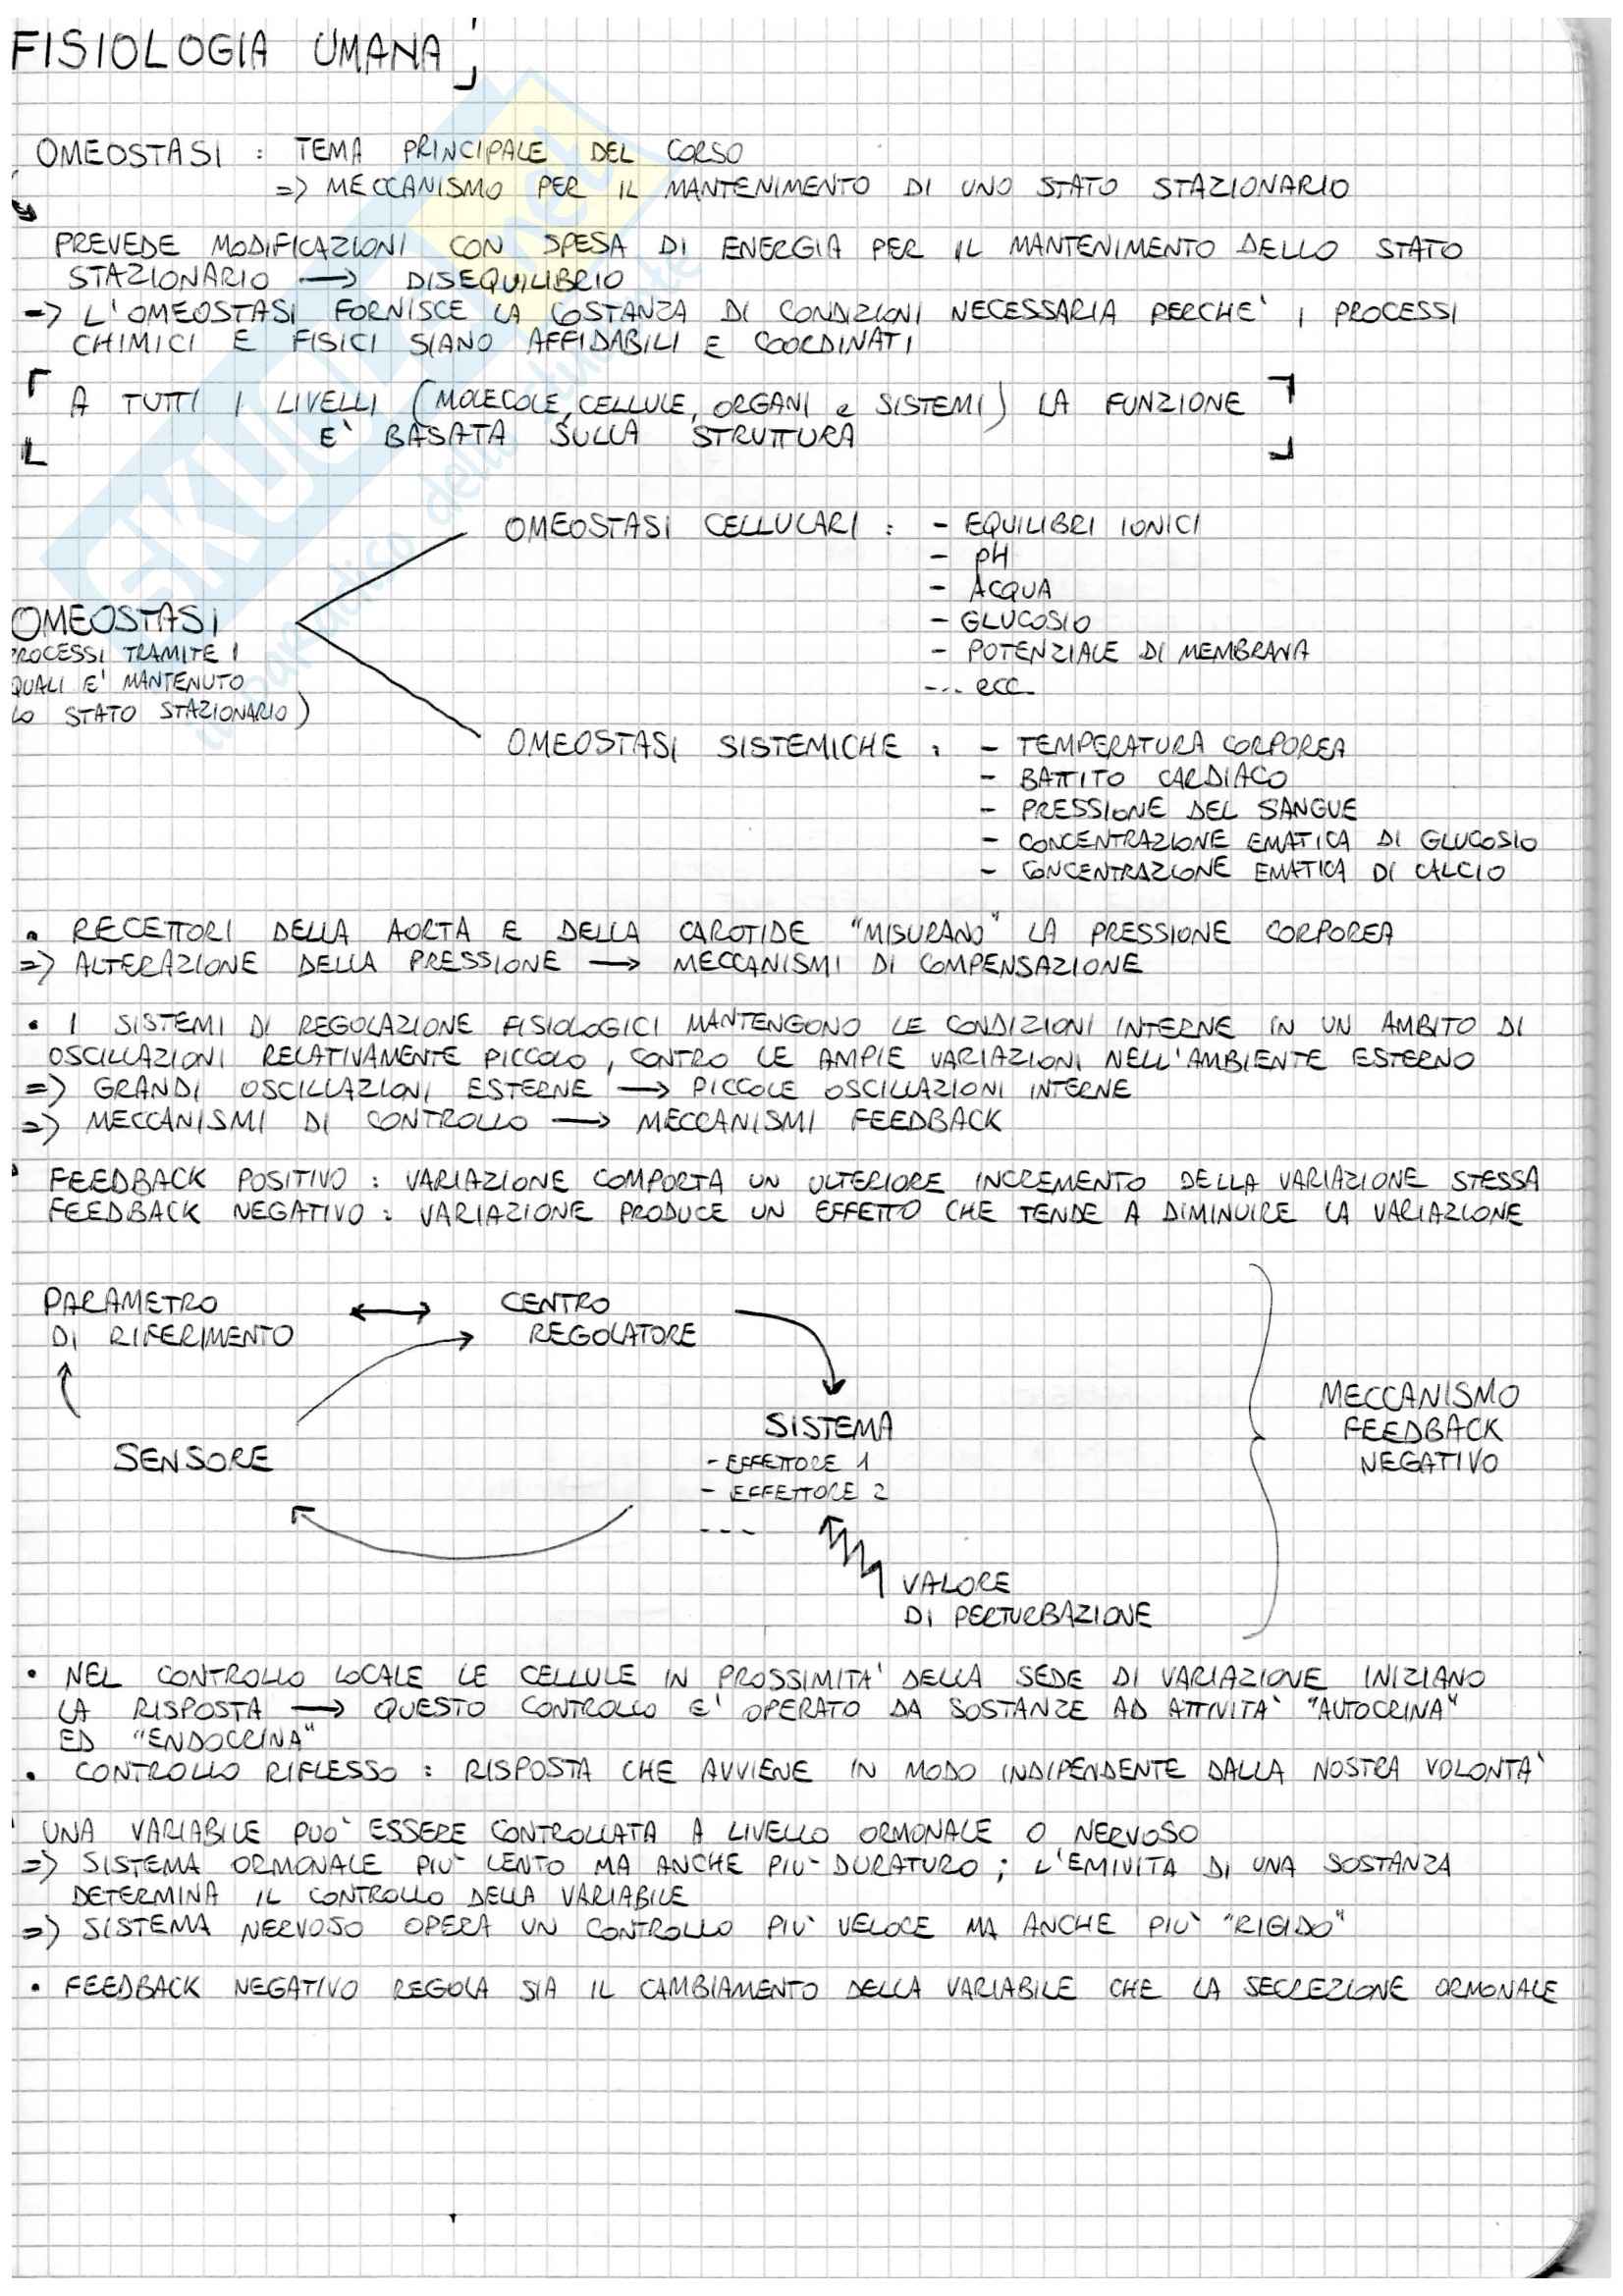 FISIOLOGIA UMANA
OMEOSTASI : TEMA PRINCIPALE DEL CORSO
=> MECCANISMO PER IL MANTENIMENTO DI UNO STATO STAZIONARIO
PREVEDE MODIFICAZIONI CON SPESA DI ENERGIA PER IL MANTENIMENTO DELLO STATO
STAZIONARIO → DISEQUILIBRIO
=> L'OMEOSTASI FORNISCE LA COSTANZA DI CONDIZIONI NECESSARIA PERCHE' I PROCESSI
CHIMICI E FISICI SIANO AFFIDABILI E COORDINATI
A TUTTI I LIVELLI (MOLECOLE, CELLULE, ORGANI e SISTEMI) LA FUNZIONE
E' BASATA SULLA STRUTTURA
OMEOSTASI CELLULARI : - EQUILIBRI IONICI
- pH
- ACQUA
- GLUCOSIO
- POTENZIALE DI MEMBRANA
--.. ecc.
OMEOSTASI
PROCESSI TRAMITE I
QUALI E' MANTENUTO
LO STATO STAZIONARIO)
OMEOSTASI SISTEMICHE : - TEMPERATURA CORPOREA
- BATTITO CARDIACO
- PRESSIONE DEL SANGUE
- CONCENTRAZIONE EMATICA DI GLUCOSIO
- CONCENTRAZIONE EMATICA DI CALCIO
• RECETTORI DELLA AORTA E DELLA CAROTIDE "MISURANO" LA PRESSIONE CORPOREA
=> ALTERAZIONE DELLA PRESSIONE → MECCANISMI DI COMPENSAZIONE
• I SISTEMI DI REGOLAZIONE FISIOLOGICI MANTENGONO LE CONDIZIONI INTERNE IN UN AMBITO DI
OSCILLAZIONI RELATIVAMENTE PICCOLO, CONTRO LE AMPIE VARIAZIONI NELL'AMBIENTE ESTERNO
=> GRANDI OSCILLAZIONI ESTERNE → PICCOLE OSCILLAZIONI INTERNE
=> MECCANISMI DI CONTROLLO → MECCANISMI FEEDBACK
• FEEDBACK POSITIVO : VARIAZIONE COMPORTA UN ULTERIORE INCREMENTO DELLA VARIAZIONE STESSA
FEEDBACK NEGATIVO : VARIAZIONE PRODUCE UN EFFETTO CHE TENDE A DIMINUIRE LA VARIAZIONE
PARAMETRO
DI RIFERIMENTO
↔ CENTRO
REGOLATORE
SENSORE
SISTEMA
- EFFETTORE 1
- EFFETTORE 2
---
VALORE
DI PERTURBAZIONE
MECCANISMO
FEEDBACK
NEGATIVO
• NEL CONTROLLO LOCALE LE CELLULE IN PROSSIMITA' DELLA SEDE DI VARIAZIONE INIZIANO
LA RISPOSTA → QUESTO CONTROLLO E' OPERATO DA SOSTANZE AD ATTIVITA' "AUTOCRINA"
ED "ENDOCRINA"
• CONTROLLO RIFLESSO : RISPOSTA CHE AVVIENE IN MODO INDIPENDENTE DALLA NOSTRA VOLONTA'
UNA VARIABILE PUO' ESSERE CONTROLLATA A LIVELLO ORMONALE O NERVOSO
=> SISTEMA ORMONALE PIU' LENTO MA ANCHE PIU' DURATURO ; L'EMIVITA DI UNA SOSTANZA
DETERMINA IL CONTROLLO DELLA VARIABILE
=> SISTEMA NERVOSO OPERA UN CONTROLLO PIU' VELOCE MA ANCHE PIU' "RIGIDO"
• FEEDBACK NEGATIVO REGOLA SIA IL CAMBIAMENTO DELLA VARIABILE CHE LA SECREZIONE ORMONALE